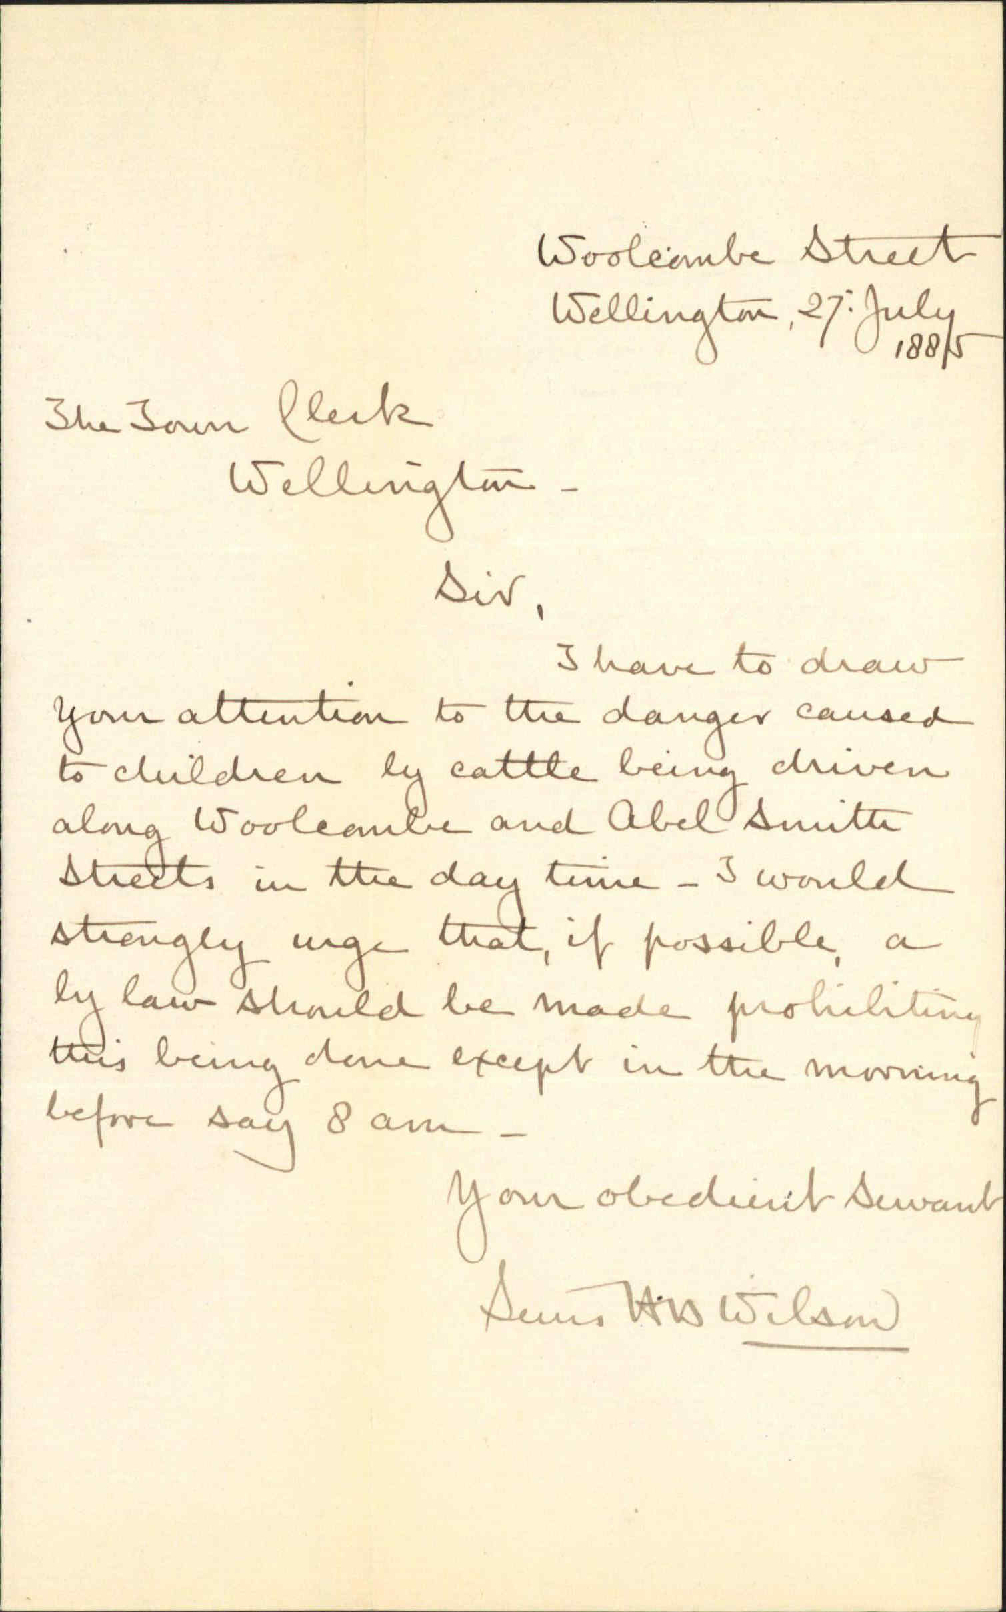 Woolcombe Street
Wellington, 27: July
1885
The Town Clerk
Wellington -
Sir,
I have to draw
your attention to the danger caused
to children by cattle being driven
along Woolcombe and Abel Smith
Streets in the day time - I would
strongly urge that, if possible, a
by law should be made prohibiting
this being done except in the morning
before say 8 am -
Your obedient Servant
Wilson